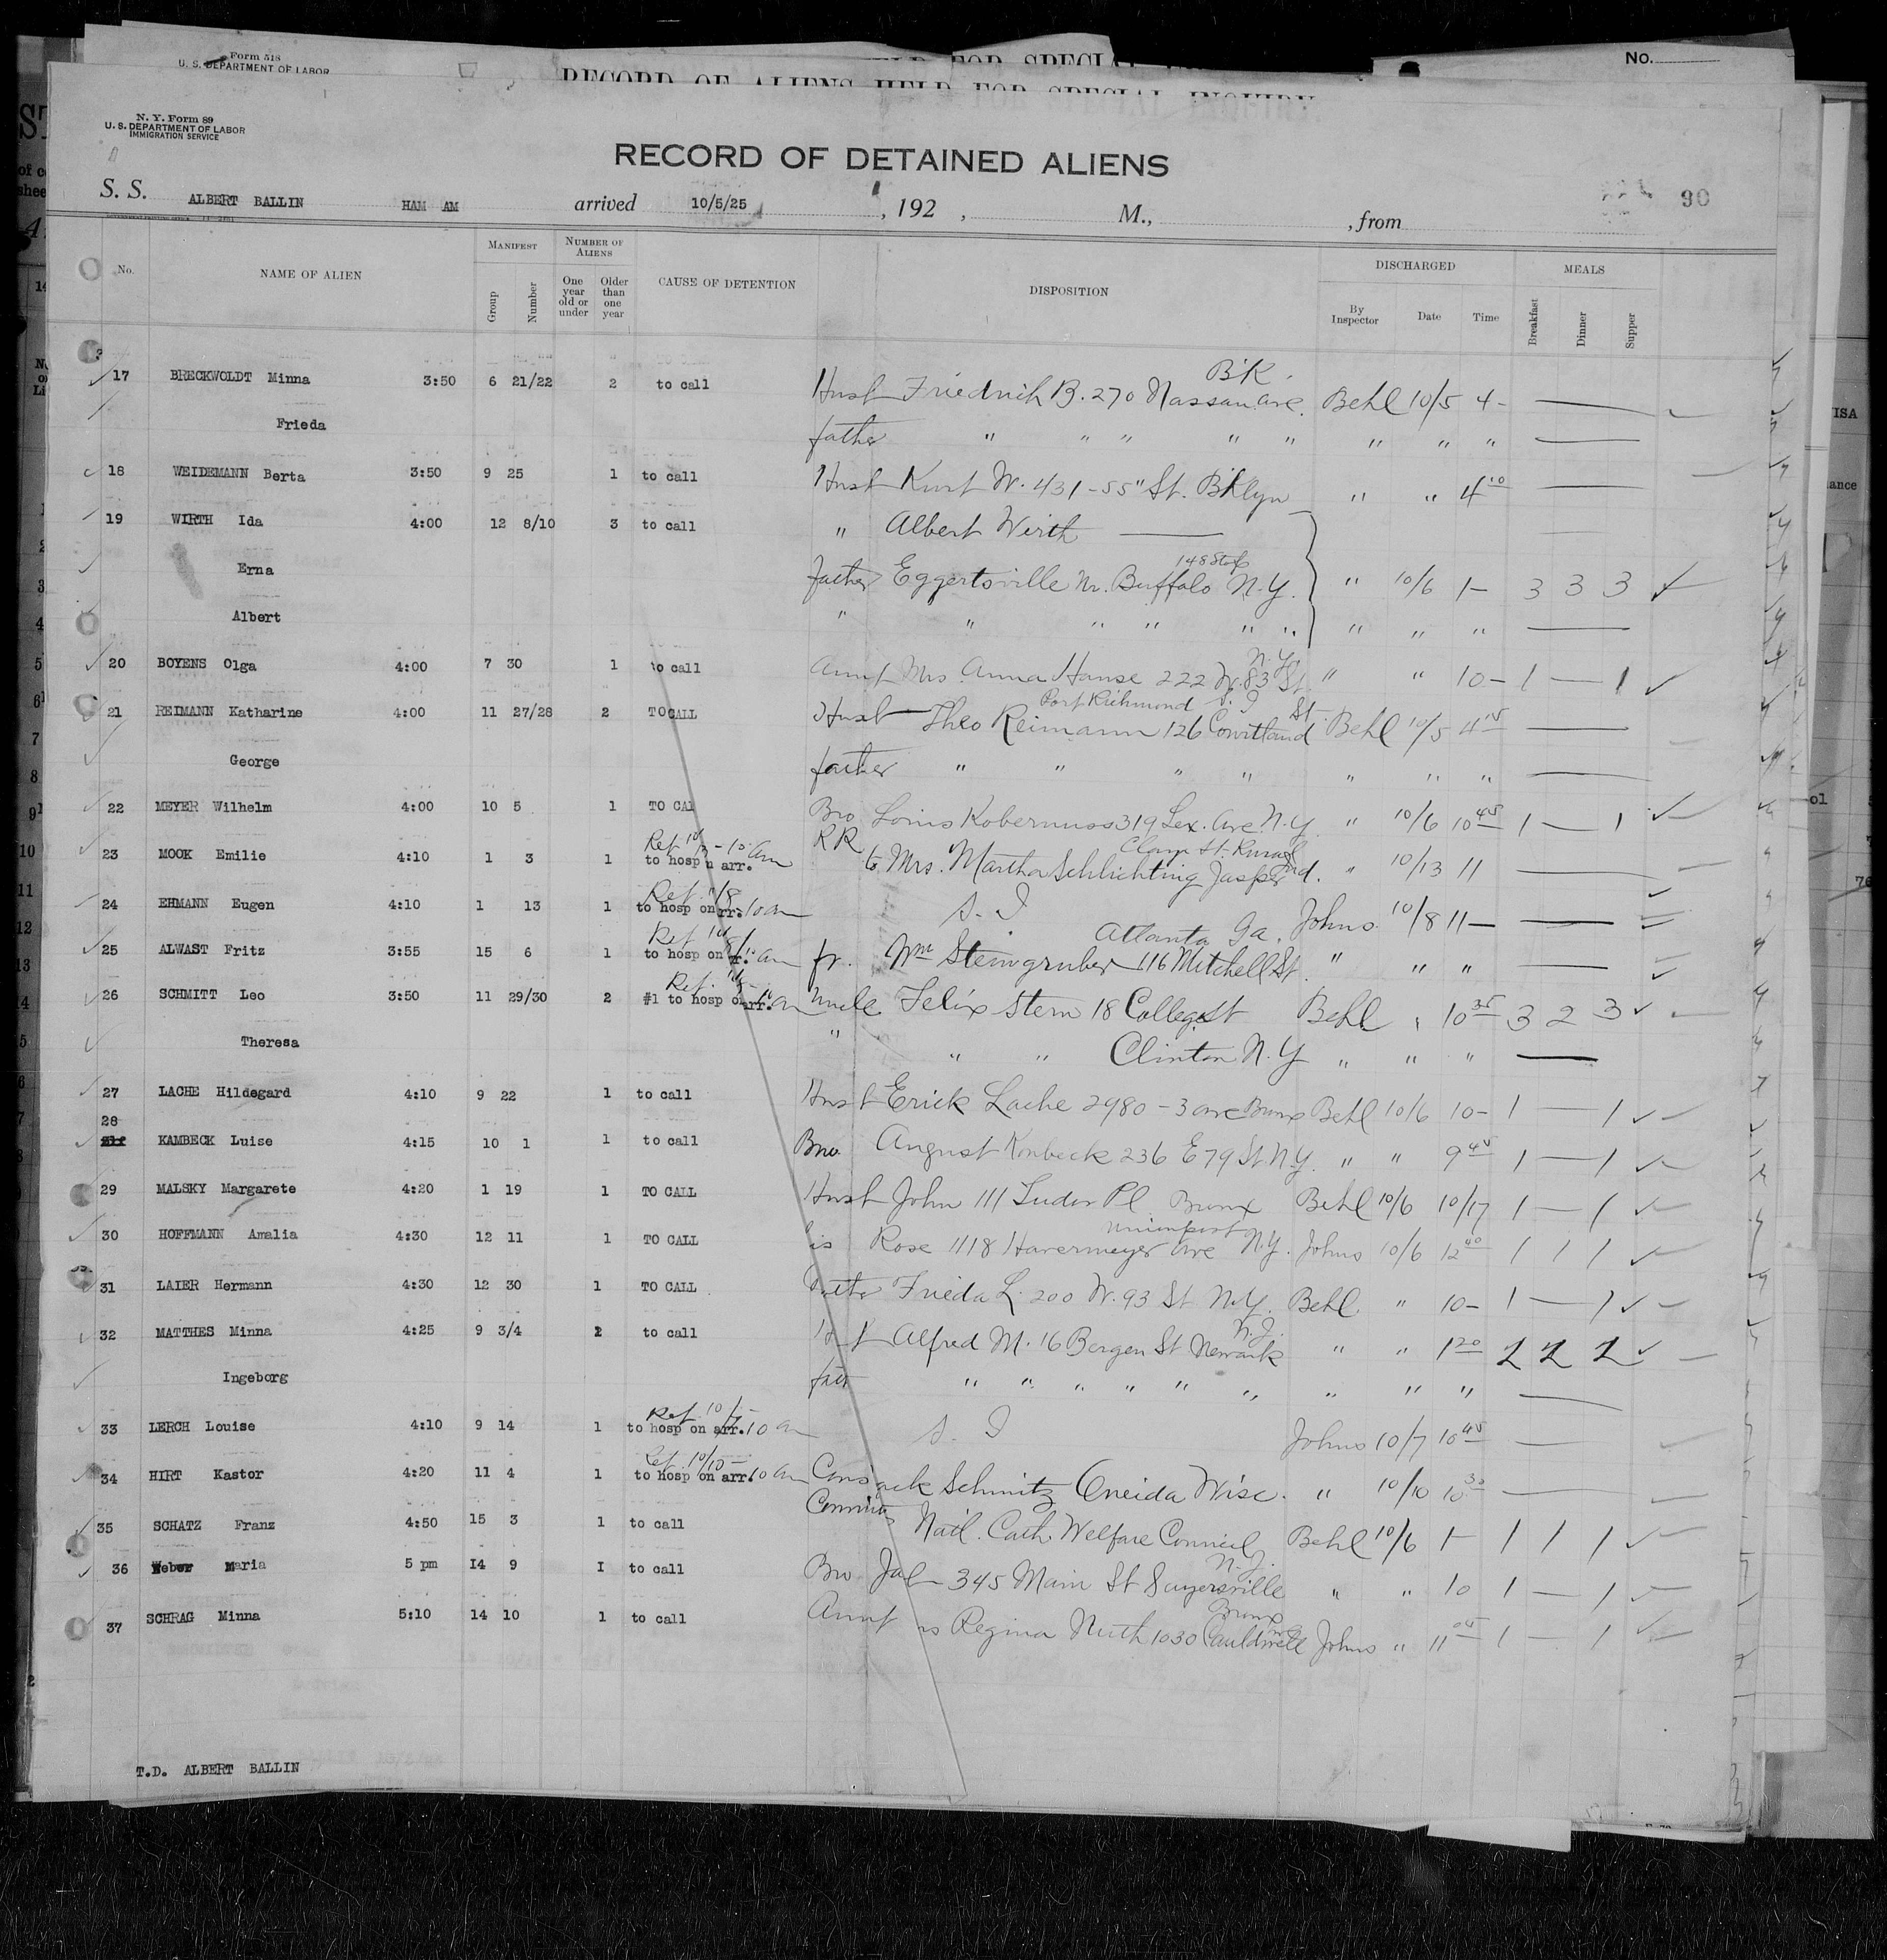 Form 518
U. S. DEPARTMENT OF LABOR
No.
RECORD OF ALIENS HELD FOR SPECIAL INQUIRY
N. Y. Form 89
U. S. DEPARTMENT OF LABOR
IMMIGRATION SERVICE
RECORD OF DETAINED ALIENS
S. S. ALBERT BALLIN HAM AM arrived 10/5/25 , 192 , M., , from 90
No. NAME OF ALIEN MANIFEST Group Number NUMBER OF ALIENS One year old or under Older than one year CAUSE OF DETENTION DISPOSITION DISCHARGED By Inspector Date Time MEALS Breakfast Dinner Supper
17 BRECKWOLDT Minna 3:50 6 21/22 2 to call Husb Friedrich B. 270 Nassau Ave. B'K. Behl 10/5 4-
Frieda father " " " " " " " "
18 WEIDEMANN Berta 3:50 9 25 1 to call Husb Kurt W. 431-55" St. Bklyn " " 4 10
19 WIRTH Ida 4:00 12 8/10 3 to call " Albert Wirth
Erna father Eggertsville Nr. Buffalo N.Y. " 10/6 1- 3 3 3
Albert " " " " " " " " "
20 BOYENS Olga 4:00 7 30 1 to call Aunt Mrs. Anna Hanse 222 W. 83 St N.Y. " " 10- 1 — 1
21 REIMANN Katharine 4:00 11 27/28 2 TO CALL Husb Theo Reimann 126 Courtland St. Port Richmond S.I Behl 10/5 4 15
George father " " " " " " "
22 MEYER Wilhelm 4:00 10 5 1 TO CAL Bro Louis Kobernuss 319 Lex. Ave. N.Y. " 10/6 10 45 1 — 1
23 MOOK Emilie 4:10 1 3 1 to hosp n arr. RR to Mrs. Martha Schlichting Jasper Ind. " 10/13 11
24 EHMANN Eugen 4:10 1 13 1 to hosp on arr. 10 am S. I Johns 10/8 11-
25 ALWAST Fritz 3:55 15 6 1 to hosp on r. am fr. Wm Steingruber 116 Mitchell St. Atlanta Ga. " " "
26 SCHMITT Leo 3:50 11 29/30 2 #1 to hosp on arr. Uncle Felix Stern 18 College St Behl " 10 35 3 2 3
Theresa " " " Clinton N.Y " " "
27 LACHE Hildegard 4:10 9 22 1 to call Husb Erick Lache 2980-3 Ave Bronx Behl 10/6 10- 1 — 1
28 KAMBECK Luise 4:15 10 1 1 to call Bro. August Konbeck 236 E 79 St N.Y. " " 9 45 1 — 1
29 MALSKY Margarete 4:20 1 19 1 TO CALL Husb John 111 Tudor Pl Bronx Behl 10/6 10/17 1 — 1
30 HOFFMANN Amalia 4:30 12 11 1 TO CALL is Rose 1118 Havermeyer Ave N.Y. Unionport Johns 10/6 12 40 1 1 1
31 LAIER Hermann 4:30 12 30 1 TO CALL Frieda L. 200 W. 93 St N.Y. Behl " 10- 1 — 1
32 MATTHES Minna 4:25 9 3/4 2 to call Alfred M. 16 Bergen St Newark N.J. " " 1 20 2 2 2
Ingeborg " " " " " " " " "
33 LERCH Louise 4:10 9 14 1 to hosp on arr. 10 am S. I Johns 10/7 10 45
34 HIRT Kastor 4:20 11 4 1 to hosp on arr. 10 am Ref. 10/10 Schmitz Oneida Wisc. " 10/10 10 30
35 SCHATZ Franz 4:50 15 3 1 to call Natl. Cath. Welfare Council Behl 10/6 1- 1 1 1
36 Weber Maria 5 pm 14 9 I to call Bro 345 Main St Sayersville N.J. " " 10 1 — 1
37 SCHRAG Minna 5:10 14 10 1 to call Aunt rs Regina 1030 Cauldwell Bronx Johns " 11 05 1 — 1
T.D. ALBERT BALLIN